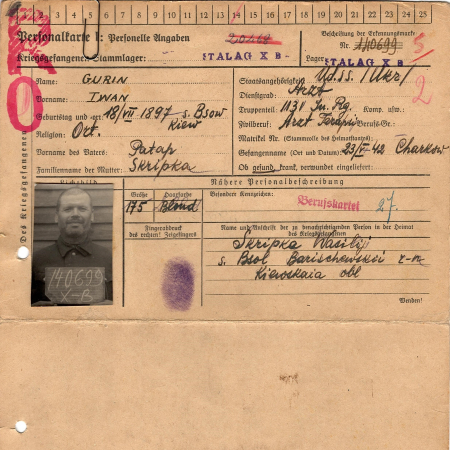 1 2 3 4 5 6 7 8 9 10 11 12 13 14 15 16 17 18 19 20 21 22 23 24 25
Personalkarte I: Personelle Angaben
Kriegsgefangenen-Stammlager: STALAG X B
Beschriftung der Erkennungsmarke
Nr. 140699
Lager: STALAG X B
5
2
Des Kriegsgefangenen
Name: GURIN
Vorname: IWAN
Geburtstag und -ort: 18/VII 1897 s. Bsow
Kiew
Religion: Ort.
Vorname des Vaters: Patap
Familienname der Mutter: Skripka
Staatsangehörigkeit: Ud.SS. /Ukr/
Dienstgrad: Arzt
Truppenteil: 1131 In. Rg. Komp. usw.:
Zivilberuf: Arzt Berufs-Gr.:
Matrikel Nr. (Stammrolle des Heimatstaates):
Gefangennahme (Ort und Datum): 23/V 42 Charkow
Ob gesund, krank, verwundet eingeliefert:
Lichtbild
Nähere Personalbeschreibung
Größe
175
Haarfarbe
Blond
Besondere Kennzeichen:
Berufskartei
27.
Fingerabdruck
des rechten! Zeigefingers
Name und Anschrift der zu benachrichtigenden Person in der Heimat
des Kriegsgefangenen
Skripka Wasilij
s. Bsol Barischewskii r-n
Kiewskaia obl
Wenden!
140699
X-B